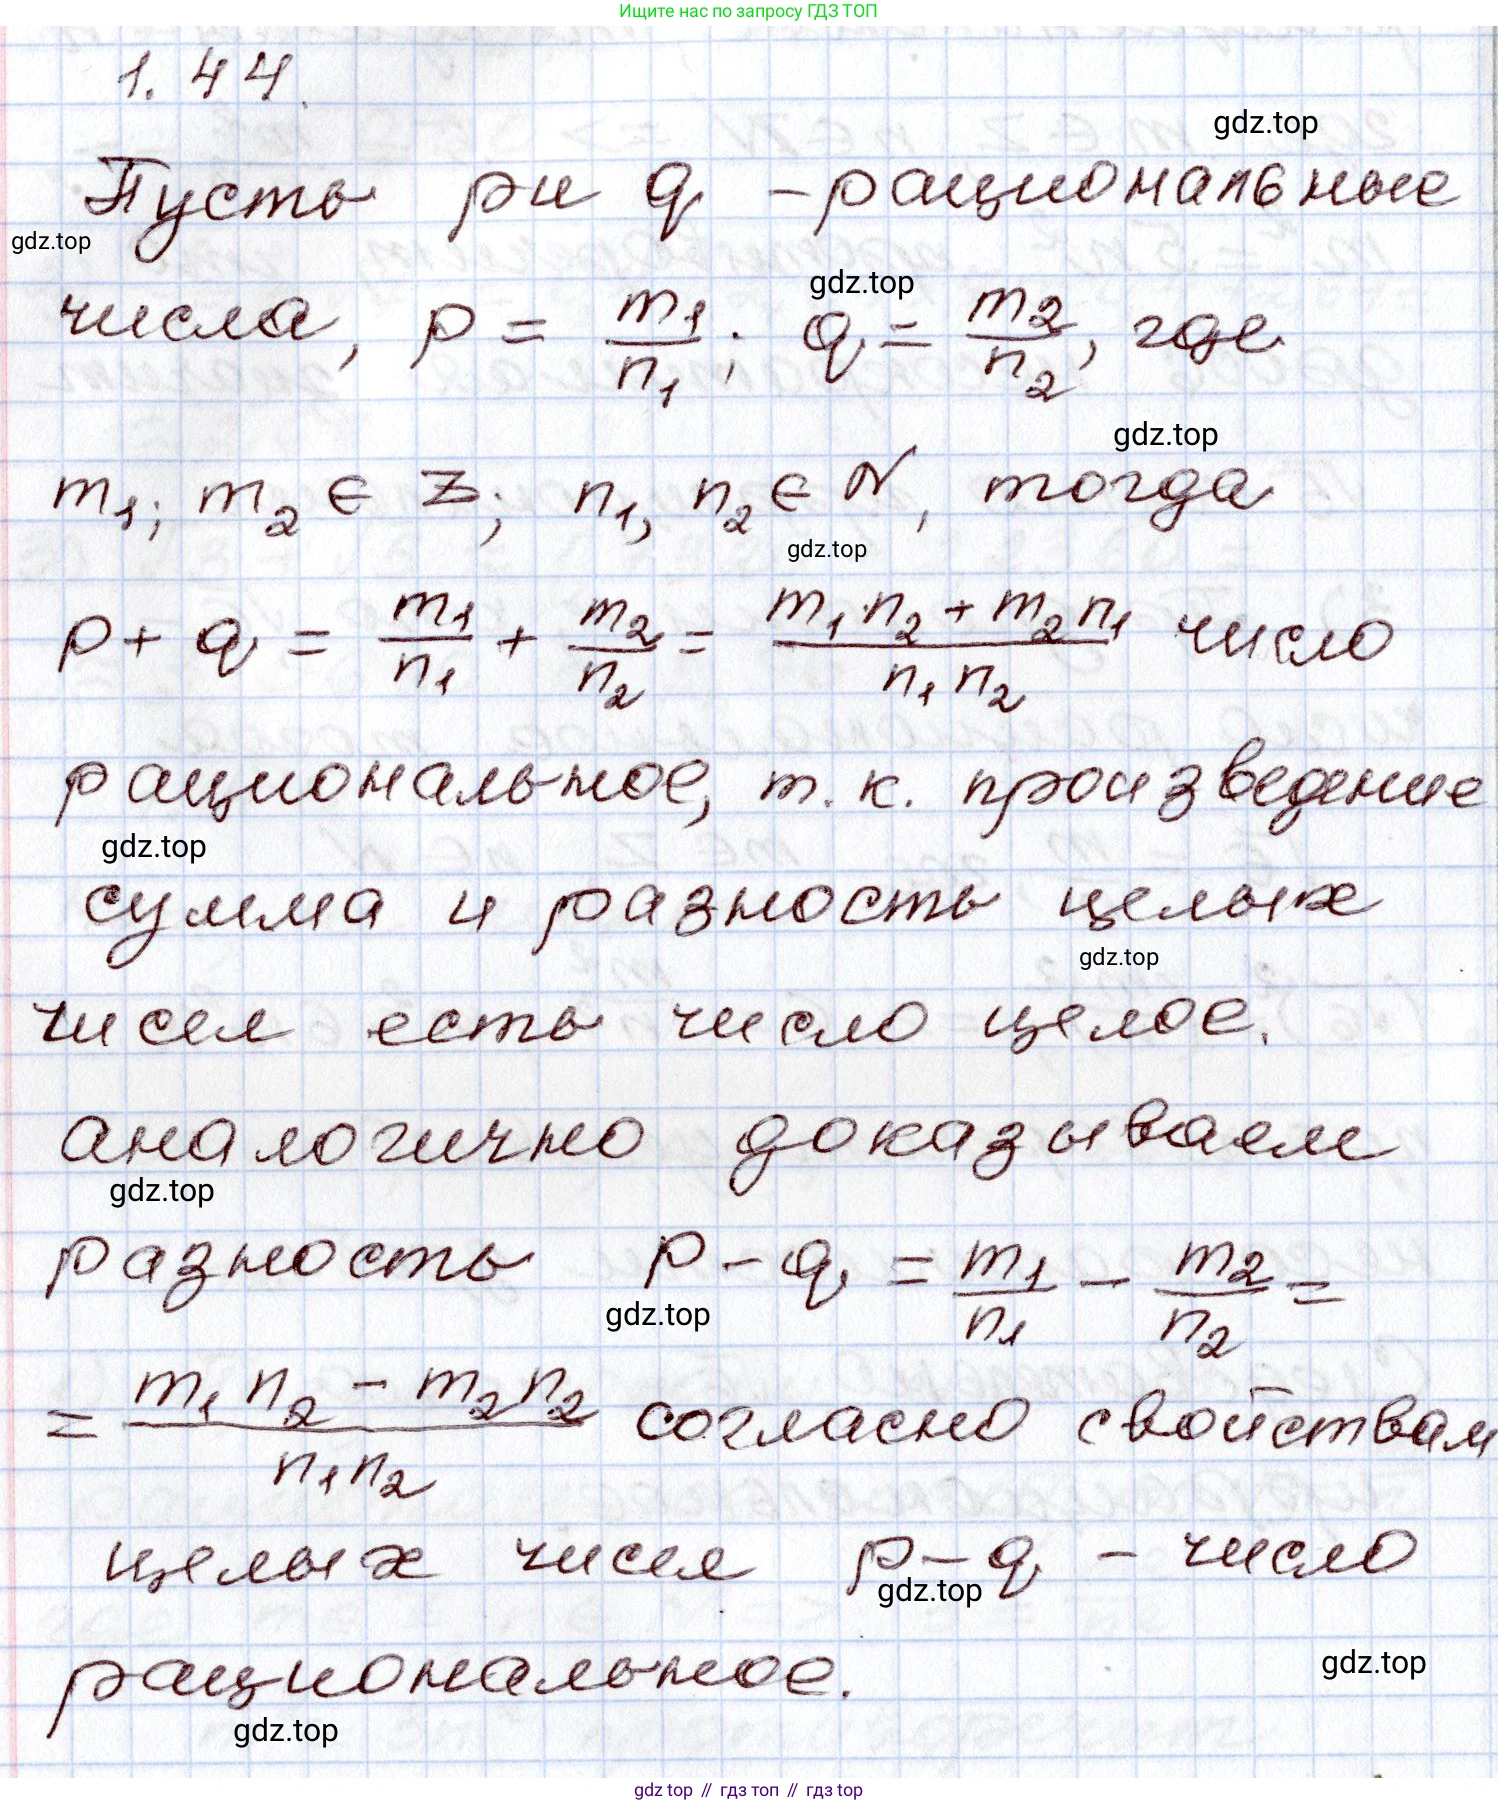 Ищите нас по запросу ГДЗ ТОП
1.44.
gdz.top
Пусть p и q – рациональные
gdz.top
gdz.top
числа, p = m₁/n₁; q = m₂/n₂, где
gdz.top
m₁; m₂ ∈ Z; n₁, n₂ ∈ N, тогда
gdz.top
p + q = m₁/n₁ + m₂/n₂ = (m₁n₂ + m₂n₁)/(n₁n₂) число
рациональное, т.к. произведение
gdz.top
сумма и разность целых
gdz.top
чисел есть число целое.
аналогично доказываем
gdz.top
разность p – q = m₁/n₁ – m₂/n₂ =
gdz.top
= (m₁n₂ – m₂n₂)/(n₁n₂) согласно свойствам
целых чисел p – q – число
gdz.top
рациональное.
gdz.top
gdz.top
gdz top // гдз топ // гдз top